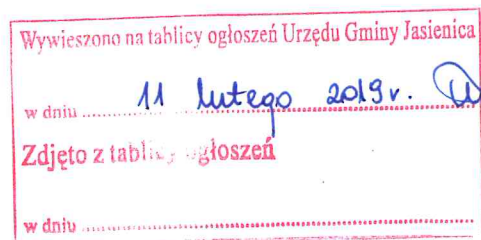 Wywieszono na tablicy ogłoszeń Urzędu Gminy Jasienica
w dniu 11 lutego 2019 r.
Zdjęto z tablicy ogłoszeń
w dniu